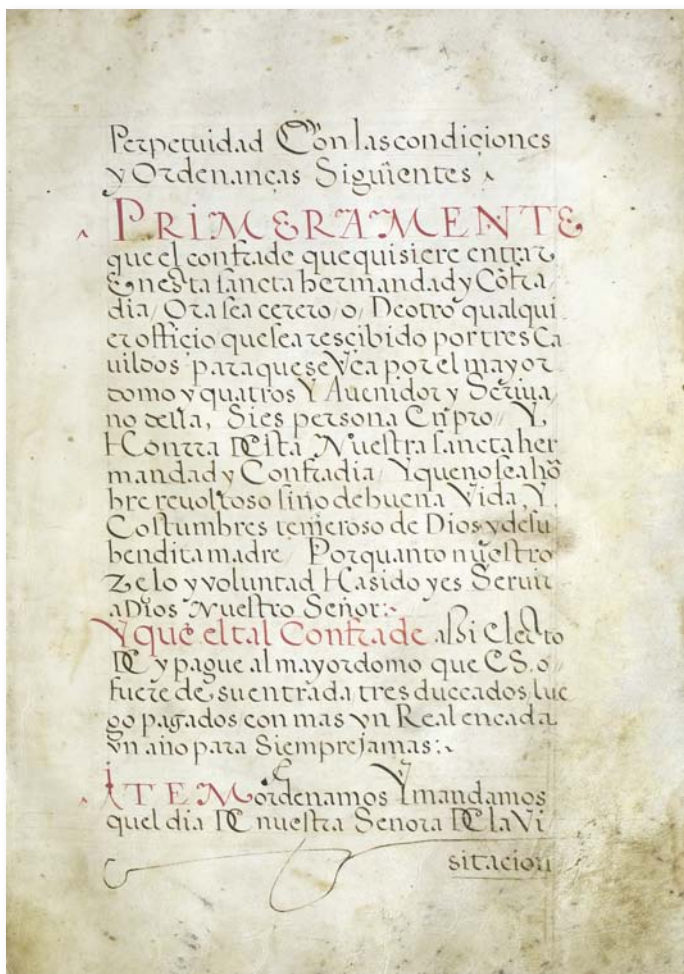 Perpetuidad Con las condiciones
y Ordenanças Siguientes
PRIMERAMENTE
que el confrade que quisiere entrar
En esta sancta hermandad y Cõfra
dia, Ora sea cerero, o, De otro qualqui
er officio que sea rescibido por tres Ca
uildos para que se Vea por el mayor
domo y quatros Y Auenidor y Scriua
no della, Si es persona En pro Y,
Honrra DEsta Nuestra sancta her
mandad y Confradia, Y que no sea hõ
bre reuoltoso sino de buena Vida, Y
Costumbres temeroso de Dios y de su
bendita madre, Por quanto nuestro
Zelo y voluntad Ha sido y es Seruir
a Dios Nuestro Señor:
Y que el tal Confrade assi Electo
DE y pague al mayordomo que ES. o
fuere de, su entrada tres duccados, lue
go pagados con mas vn Real en cada
vn año para Siempre jamas:
ITEM ordenamos Y mandamos
quel dia DE nuestra Senora DE la Vi
sitacion